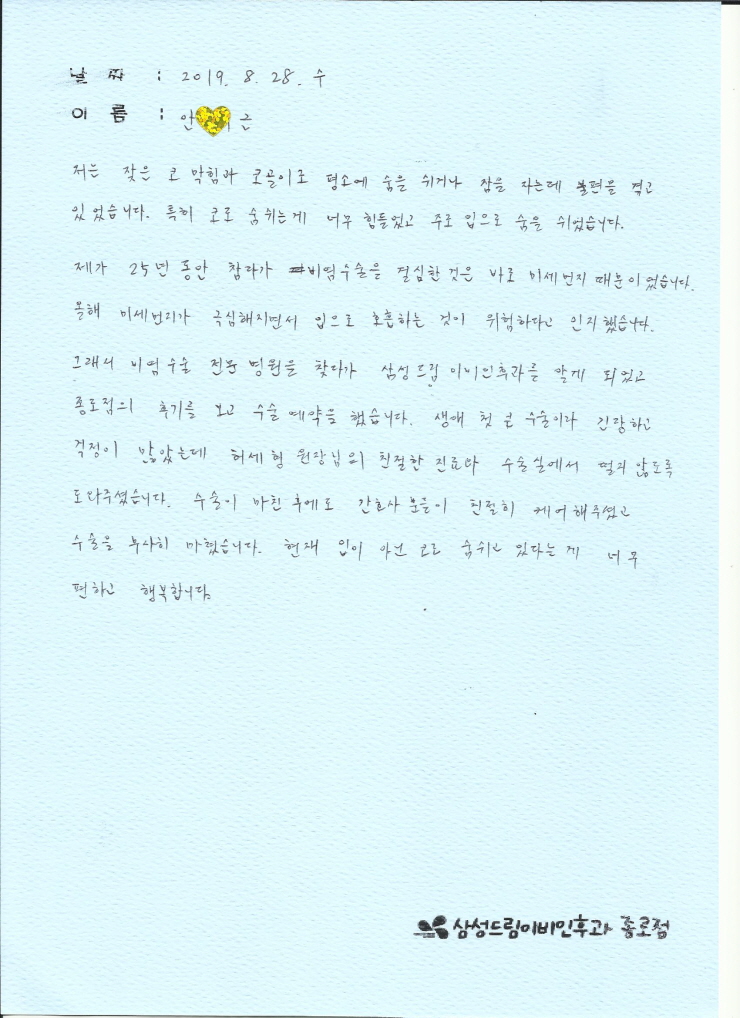 날 짜 : 2019. 8. 28. 수
이 름 : 안 근
저는 잦은 코 막힘과 코골이로 평소에 숨을 쉬거나 잠을 자는데 불편을 겪고
있었습니다. 특히 코로 숨쉬는게 너무 힘들었고 주로 입으로 숨을 쉬었습니다.
제가 25년 동안 참다가 비염수술을 결심한 것은 바로 미세먼지 때문이었습니다.
올해 미세먼지가 극심해지면서 입으로 호흡하는 것이 위험하다고 인지했습니다.
그래서 비염수술 전문 병원을 찾다가 삼성드림이비인후과를 알게 되었고
종로점의 후기를 보고 수술 예약을 했습니다. 생애 첫 수술이라 긴장하고
걱정이 많았는데 허세형 원장님의 친절한 진료와 수술실에서 떨지 않도록
도와주셨습니다. 수술이 마친 후에도 간호사 분들이 친절히 케어해주셨고
수술을 무사히 마쳤습니다. 현재 입이 아닌 코로 숨쉬고 있다는게 너무
편하고 행복합니다.
삼성드림이비인후과 종로점